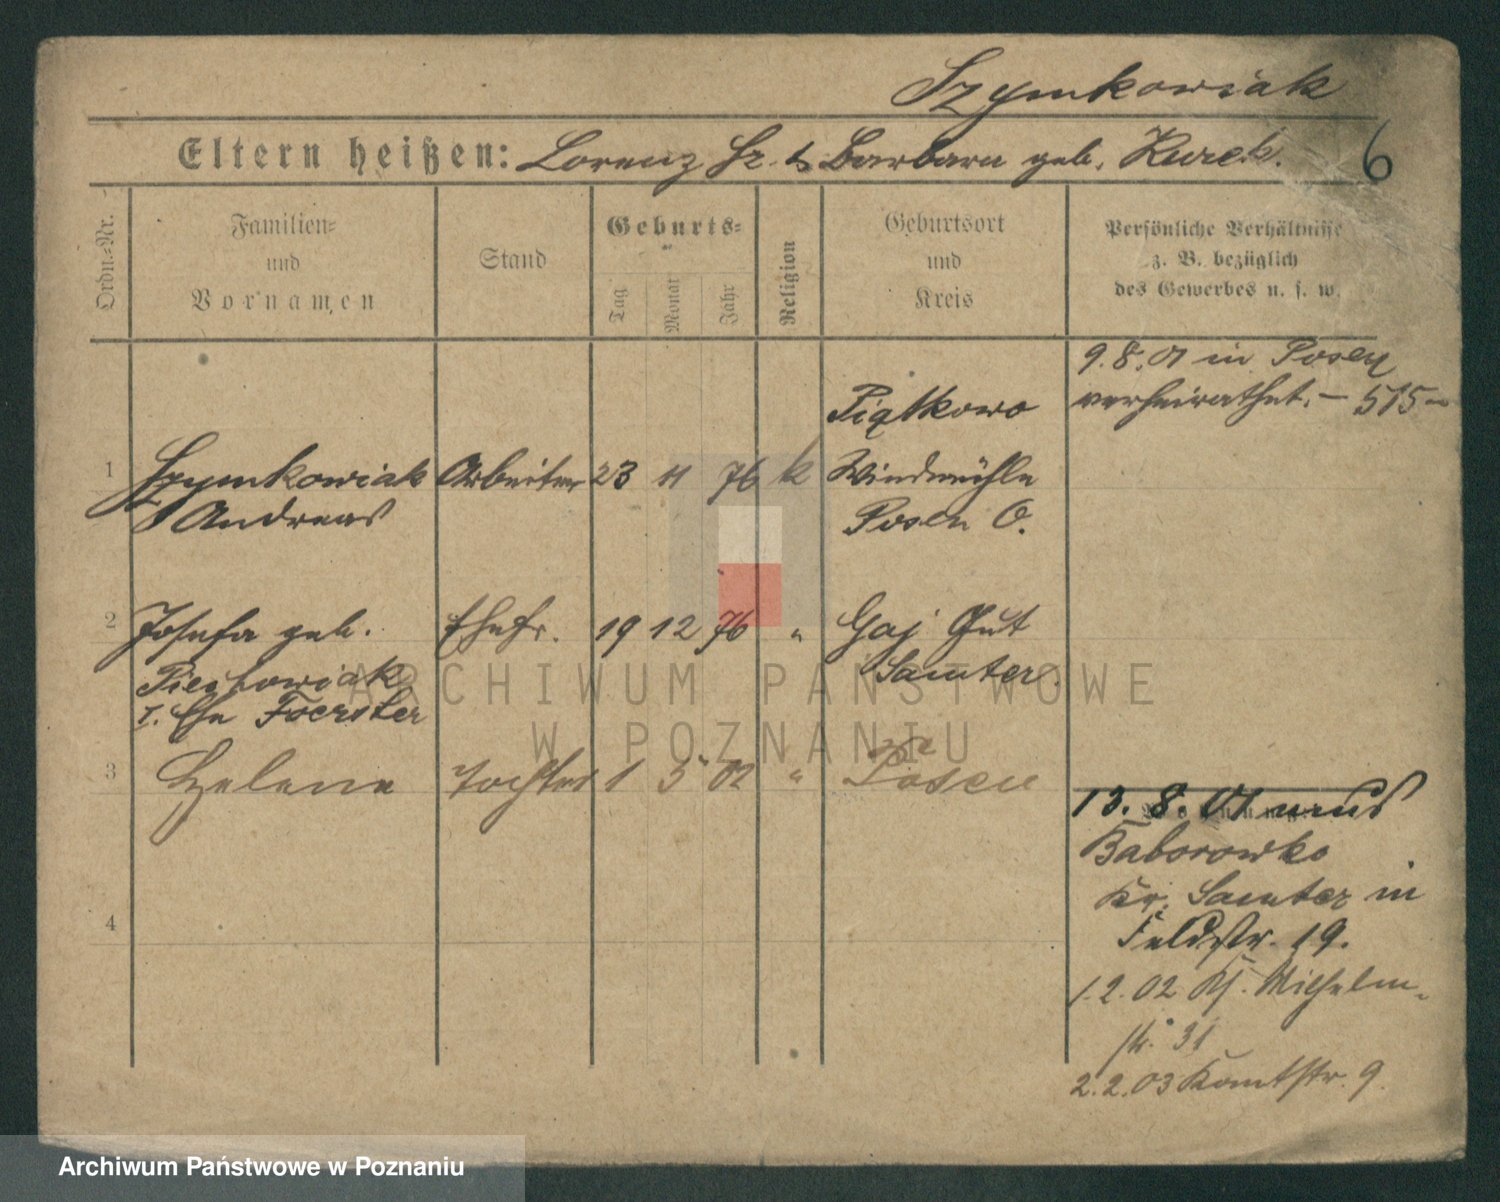 Szymkowiak
Eltern heißen: Lorenz Sz. & Barbara geb. Kurek.
6
Ordn.-Nr.
Familien-
und
Vornamen
Stand
Geburts-
Tag
Monat
Jahr
Religion
Geburtsort
und
Kreis
Persönliche Verhältnisse
z. B. bezüglich
des Gewerbes u. s. w.
9.8.01 in Posen
verheirathet. – 515 –
1
Szymkowiak
Andreas
Arbeiter
23 11 76 k
Piątkowo
Windmühle
Posen O.
2
Josefa geb.
Piechowiak
I. Ehe Foerster
Ehefr.
19 12 76 "
Gaj Gut
Samter.
3
Helene
Tochter
1 3 02 "
Posen
4
13. 8. 01 aus
Baborowko
Kr. Samter in
Feldstr. 19.
1.2.02 Kj. Wilhelm-
str. 31
2.2.03 Kantstr. 9.
ARCHIWUM PAŃSTWOWE
W POZNANIU
Archiwum Państwowe w Poznaniu